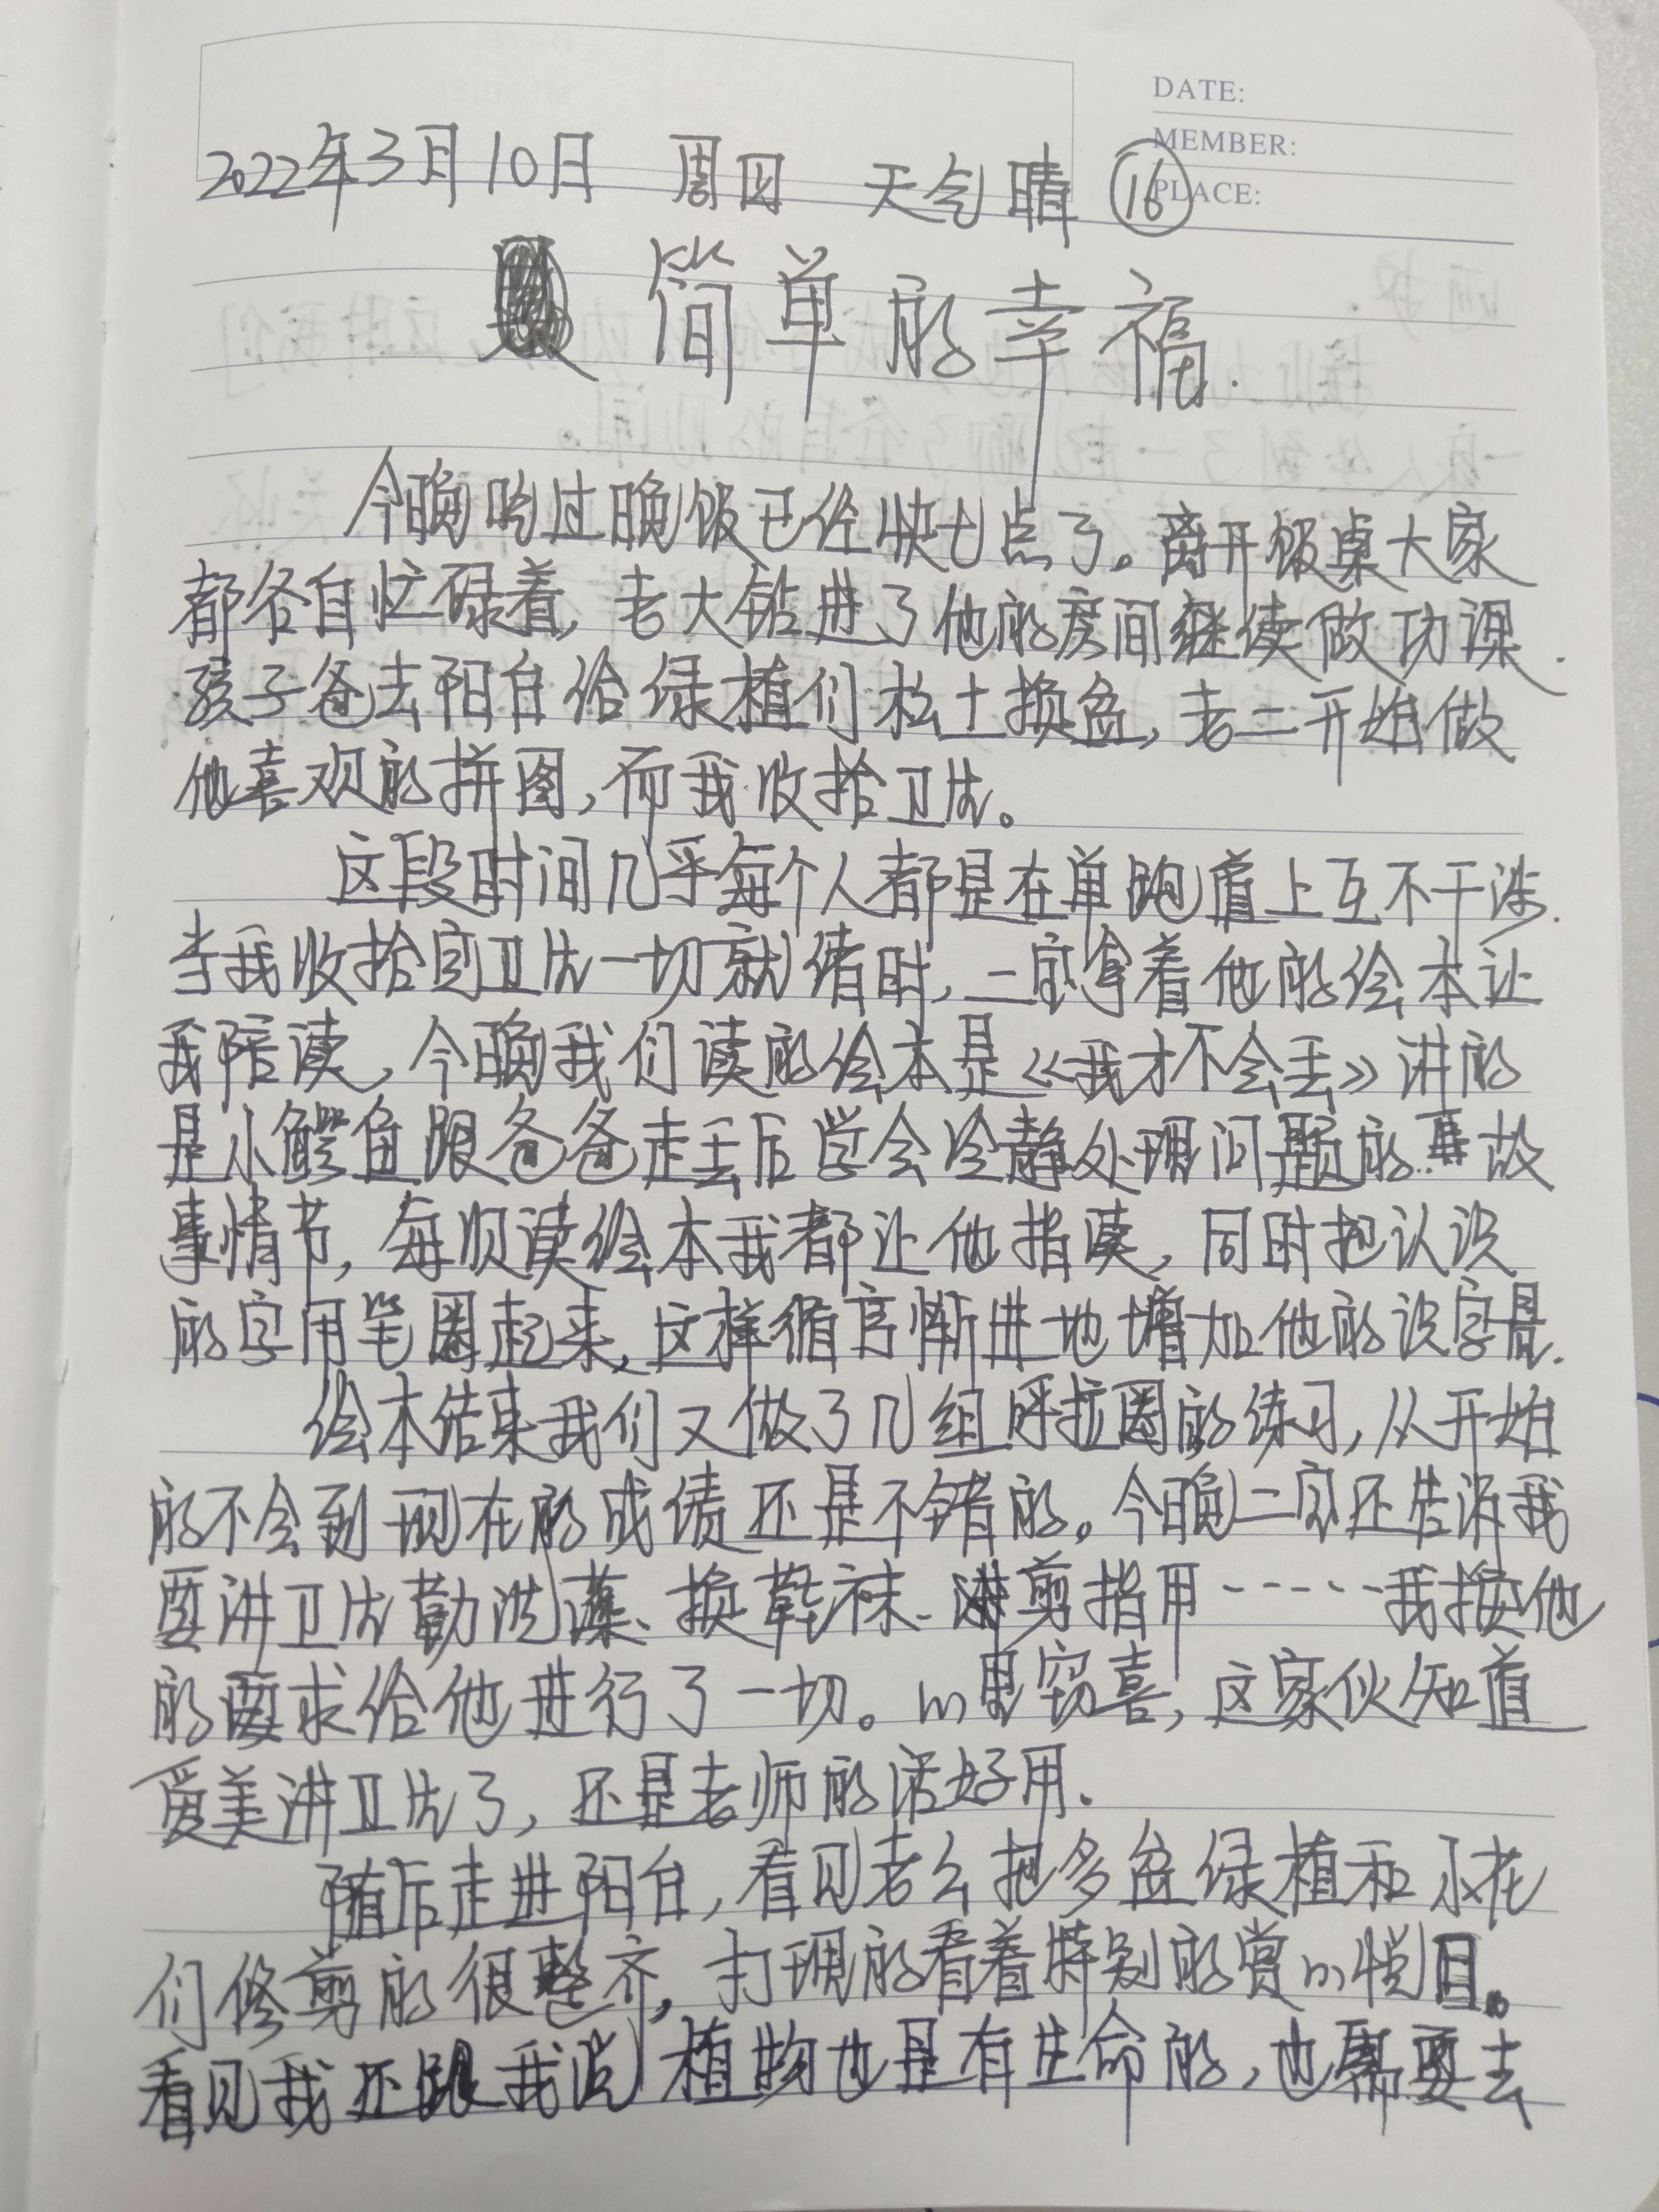 DATE:
MEMBER:
PLACE:
2022年3月10日 周四 天气晴 16
简单的幸福.
今晚吃过晚饭已经快七点了。离开饭桌大家
都各自忙碌着,老大钻进了他的房间继续做功课.
孩子爸去阳台给绿植们松土换盆,老二开始做
他喜欢的拼图,而我收拾卫生。
这段时间几乎每个人都是在单跑道上互不干涉.
当我收拾完卫生一切就绪时,二宝拿着他的绘本让
我陪读,今晚我们读的绘本是《我才不会丢》讲的
是小鳄鱼跟爸爸走丢后学会冷静处理问题的故
事情节,每次读绘本我都让他指读,同时把认识
的字用笔圈起来,这样循序渐进地增加他的识字量.
绘本结束我们又做了几组呼拉圈的练习,从开始
的不会到现在的成绩还是不错的。今晚二宝还告诉我
要讲卫生勤洗澡、换鞋袜、剪指甲……我按他
的要求给他进行了一切。心里窃喜,这家伙知道
爱美讲卫生了,还是老师的话好用.
随后走进阳台,看见老公把多盆绿植和小花
们修剪的很整齐,打理的看着特别的赏心悦目。
看见我还跟我说植物也是有生命的,也需要去